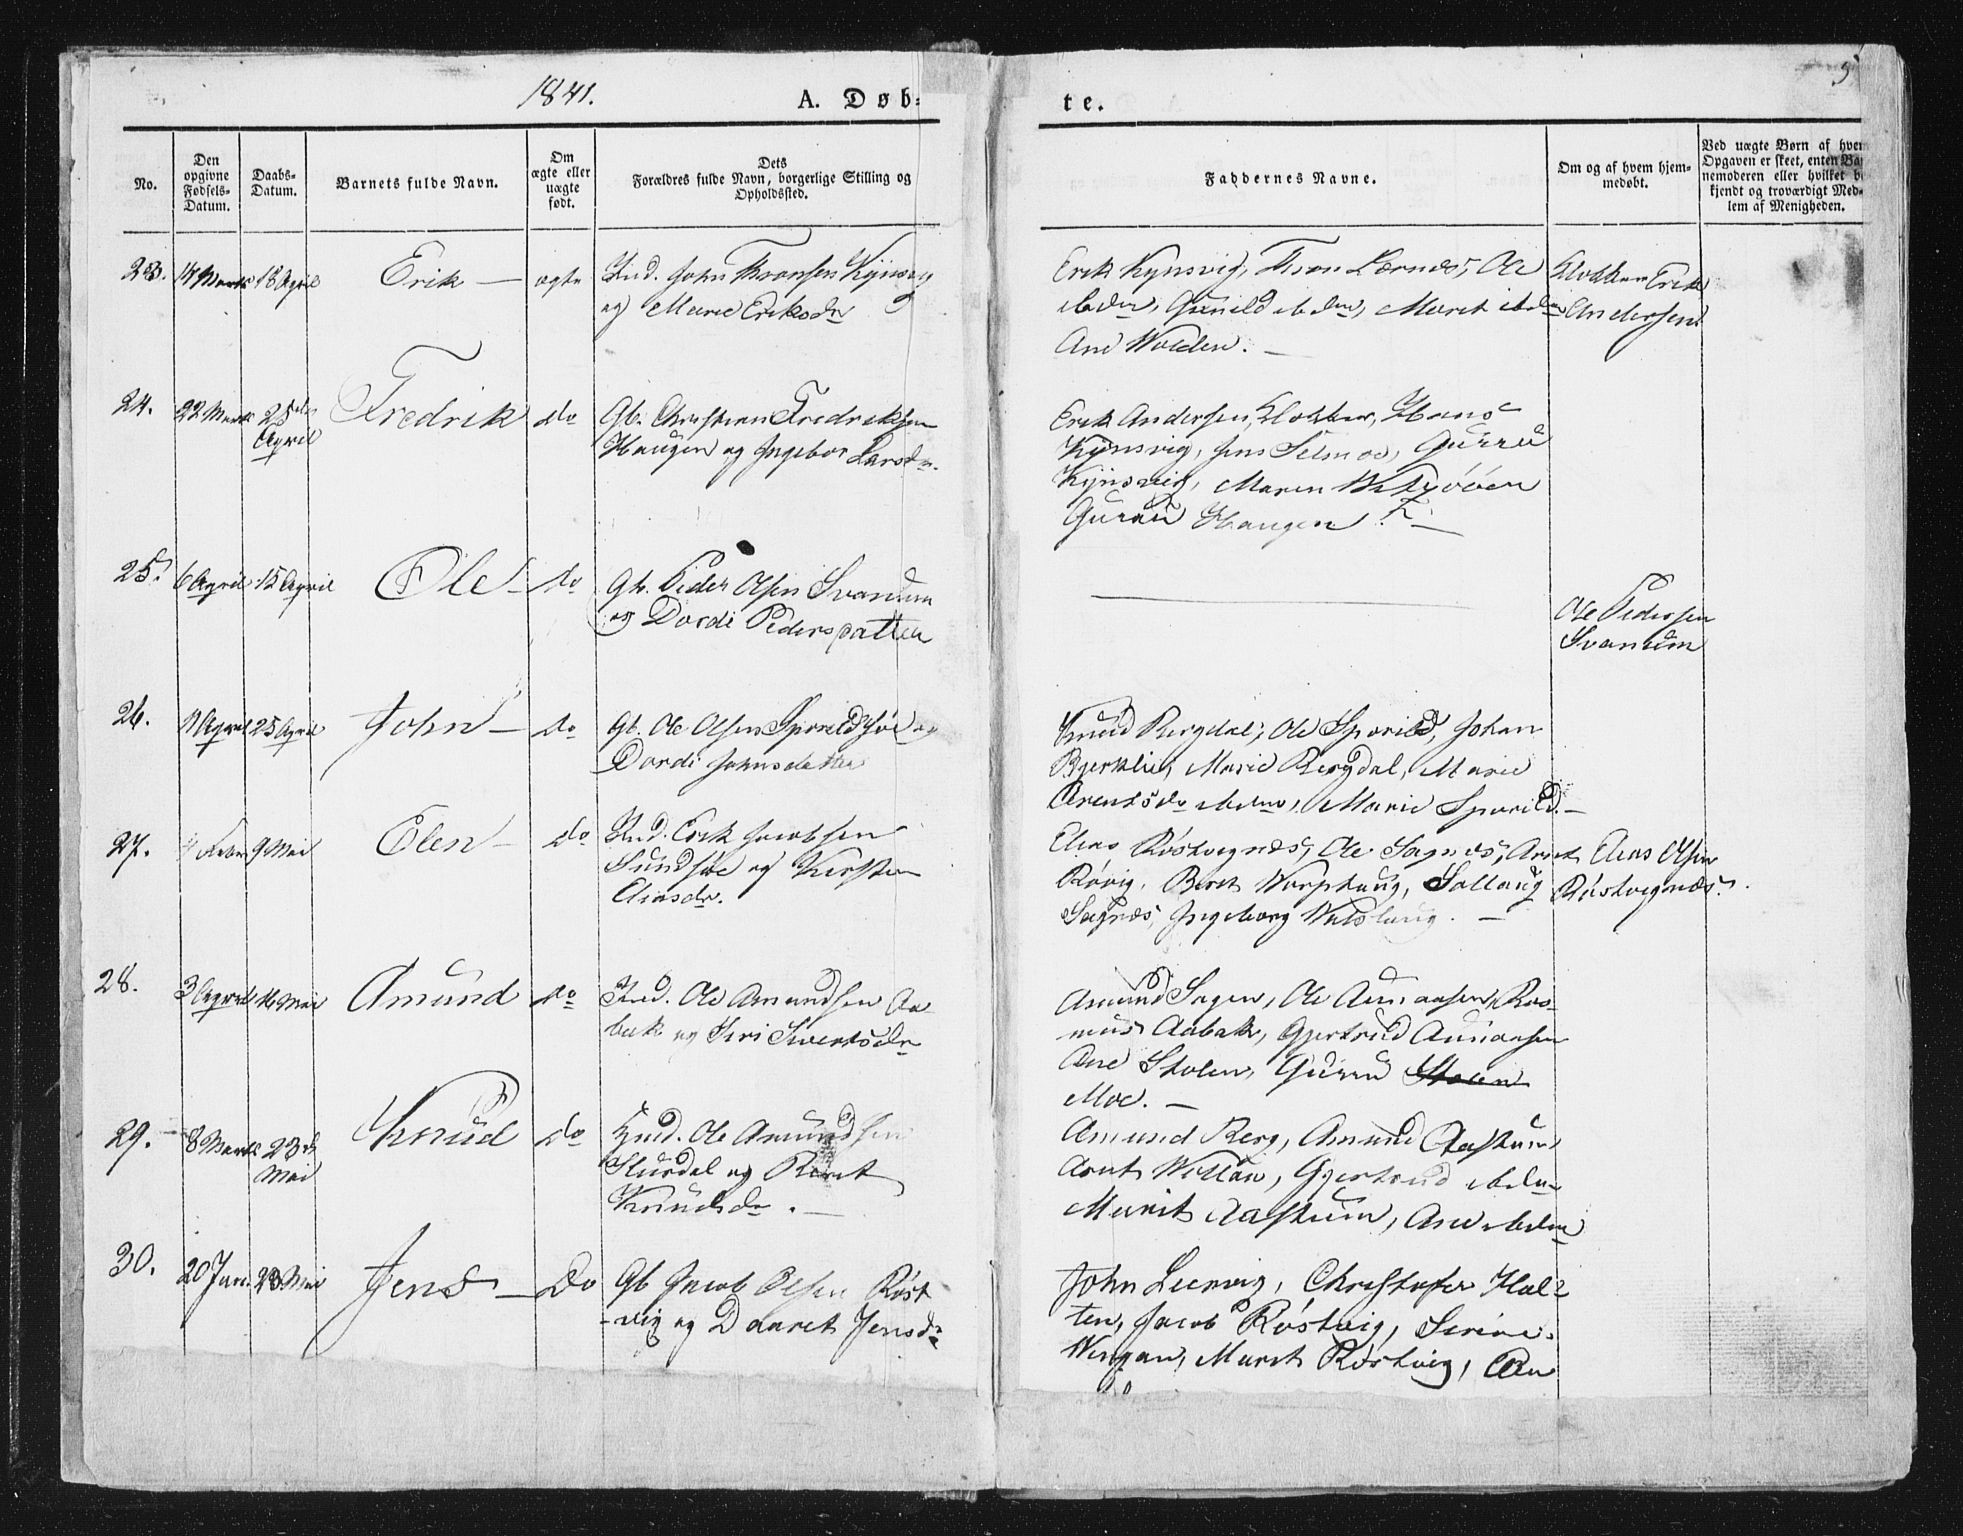 1841.
A. Døb-
te.
5
No.
Den opgivne Fødsels-Datum.
Daabs-Datum.
Barnets fulde Navn.
Om ægte eller uægte født.
Dets Forældres fulde Navn, borgerlige Stilling og Opholdssted.
Faddernes Navne.
Om og af hvem hjem-medøbt.
Ved uægte Børn af hvem
Opgaven er skeet, enten Ba
nemoderen eller hvilket b
kjendt og troværdigt Med-
lem af Menigheden.
23. 14 Marts 18 April Erik — ægte
Ind. John Kynsvig
og Marie Eriksdr
Erik Kynsvig, Lernes, Ole
ibdm, Gunild ibdm, Marit ibdm
Ane Wolden. —
Klokker Erik
Andersen.
24. 22 Marts 25de
April
Fredrik do
Gb. Christian Fredriksen
Haugen og Ingebor Larsdr.
Erik Andersen, Klokker, Hans
Kynsvig, Jens Selnes, Guru
Kynsvig, Maren
Guru Haugen. —
25. 6 April 15 April Ole — do
Gb. Peder Olsen Svanum
og Dordi Pedersdatter
Ole Pedersen
Svanum
26. 11 April 25 April John — do
Gb. Ole Olsen og
Dordi Johnsdatter
Knud Bergdal, Ole Sporild, Johan
Bjerklie, Marie Bergdal, Marie
Arentsdr ibdm, Marie Sporild. —
27. Febr 9 Mai Elen — do
Ind. Erik Jacobsen
Sundsøe og Kirsten
Eliasdr.
Elias Røstvegnes, Ole Sagnes, Arnt
Røvig, Beret Worphaug, Sallaug
Sagnes, Ingeborg —
Elias Olsen
Røstvegnes.
28. 3 April 16 Mai Amund do
Ind. Ole Amundsen Aa
bak og Siri Sivertsdr
Amund Sagen, Ole Ras-
mus Aabak, Gjertrud
Ane Stolen, Guru Stolen
Moe. —
29. 8 Marts 23de
Mai
Knud do
Ind. Ole Amundsen
Slurdal og Beret
Knudsdr. —
Amund Berg, Amund Aaskum
Arnt Gjertrud ibdm
Marit Aaskum, Ane ibdm
30. 20 Jan. 23 Mai Jens — do
Gb Jacob Olsen Røst
-vig og Daaret Jensdr
John Leervig, Christofer Hal-
ten, Jacob Røstvig, Serine
Wingan, Marit Røstvig, Ane